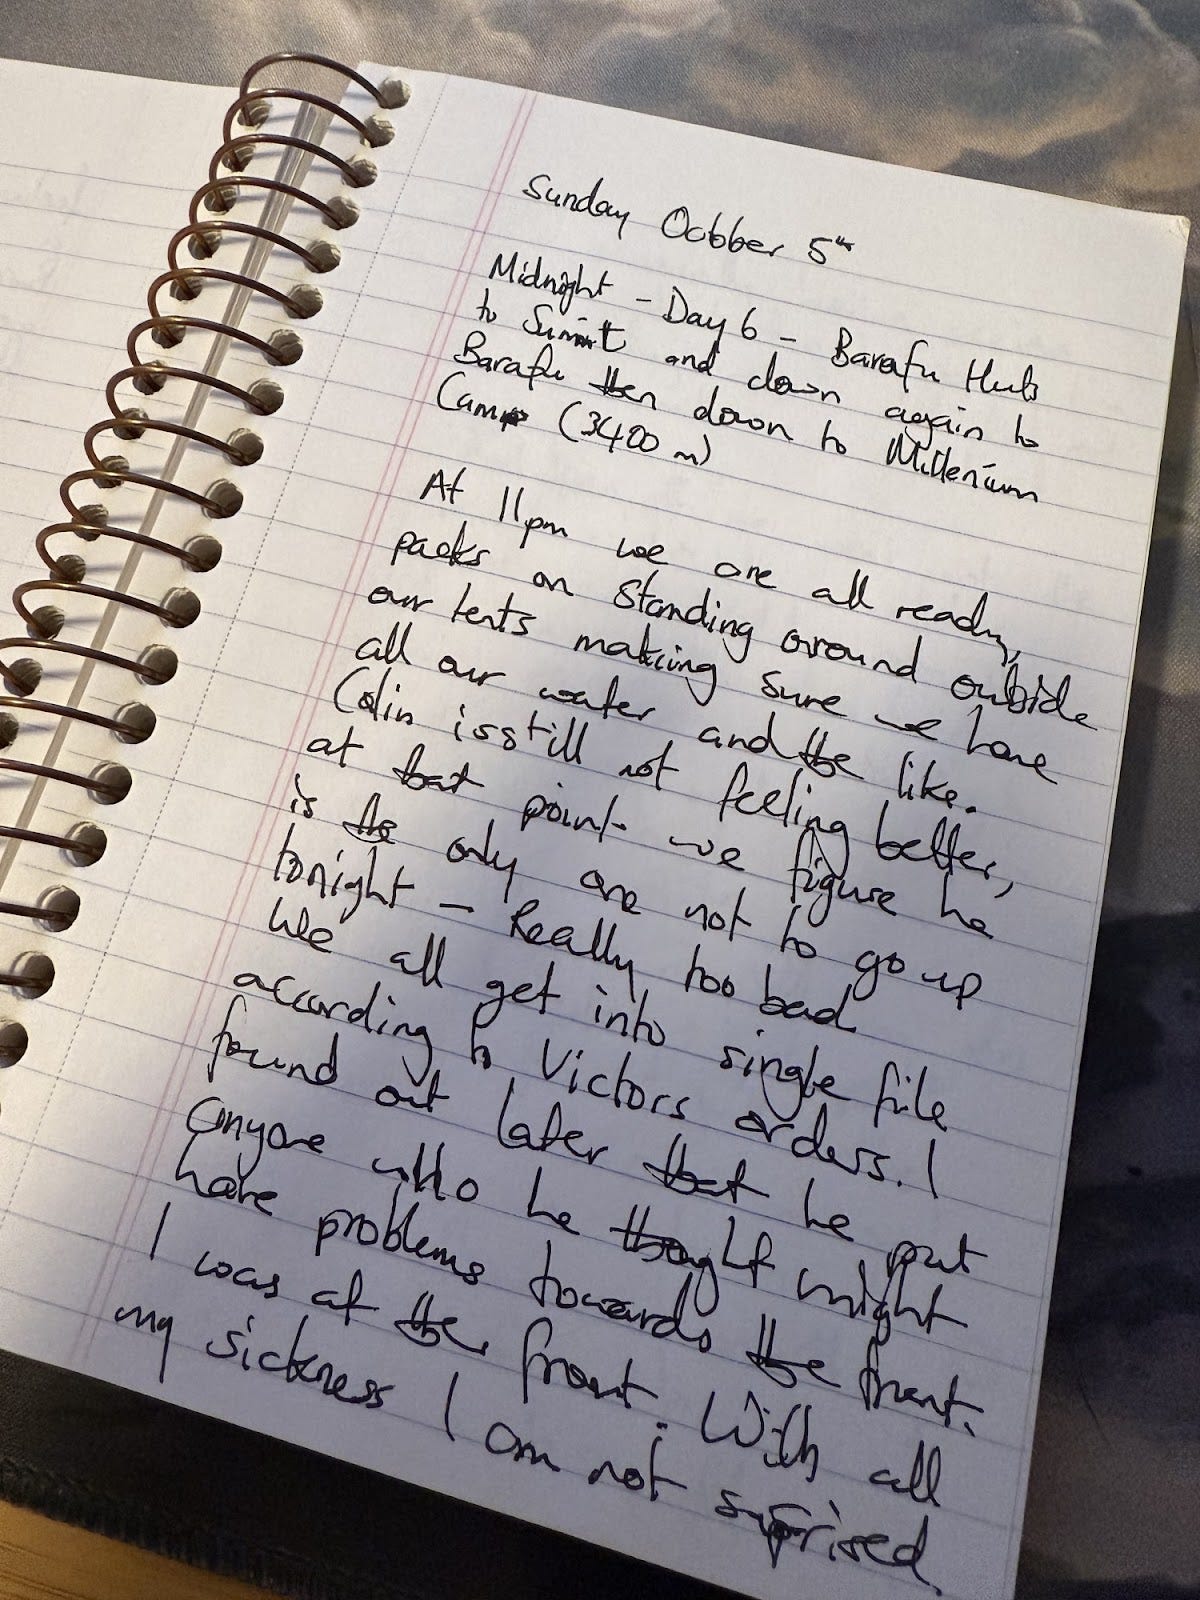 Sunday October 5th
Midnight - Day 6 - Barafu Huts
to Summit and down again to
Barafu then down to Millenium
Camp (3400 m)
At 11pm we are all ready,
packs on standing around outside
our tents making sure we have
all our water and the like.
Colin is still not feeling better,
at that point we figure he
is the only one not to go up
tonight - Really too bad
We all get into single file
according to Victors orders. I
found out later that he put
anyone who he thought might
have problems towards the front.
I was at the front. With all
my sickness I am not suprised.